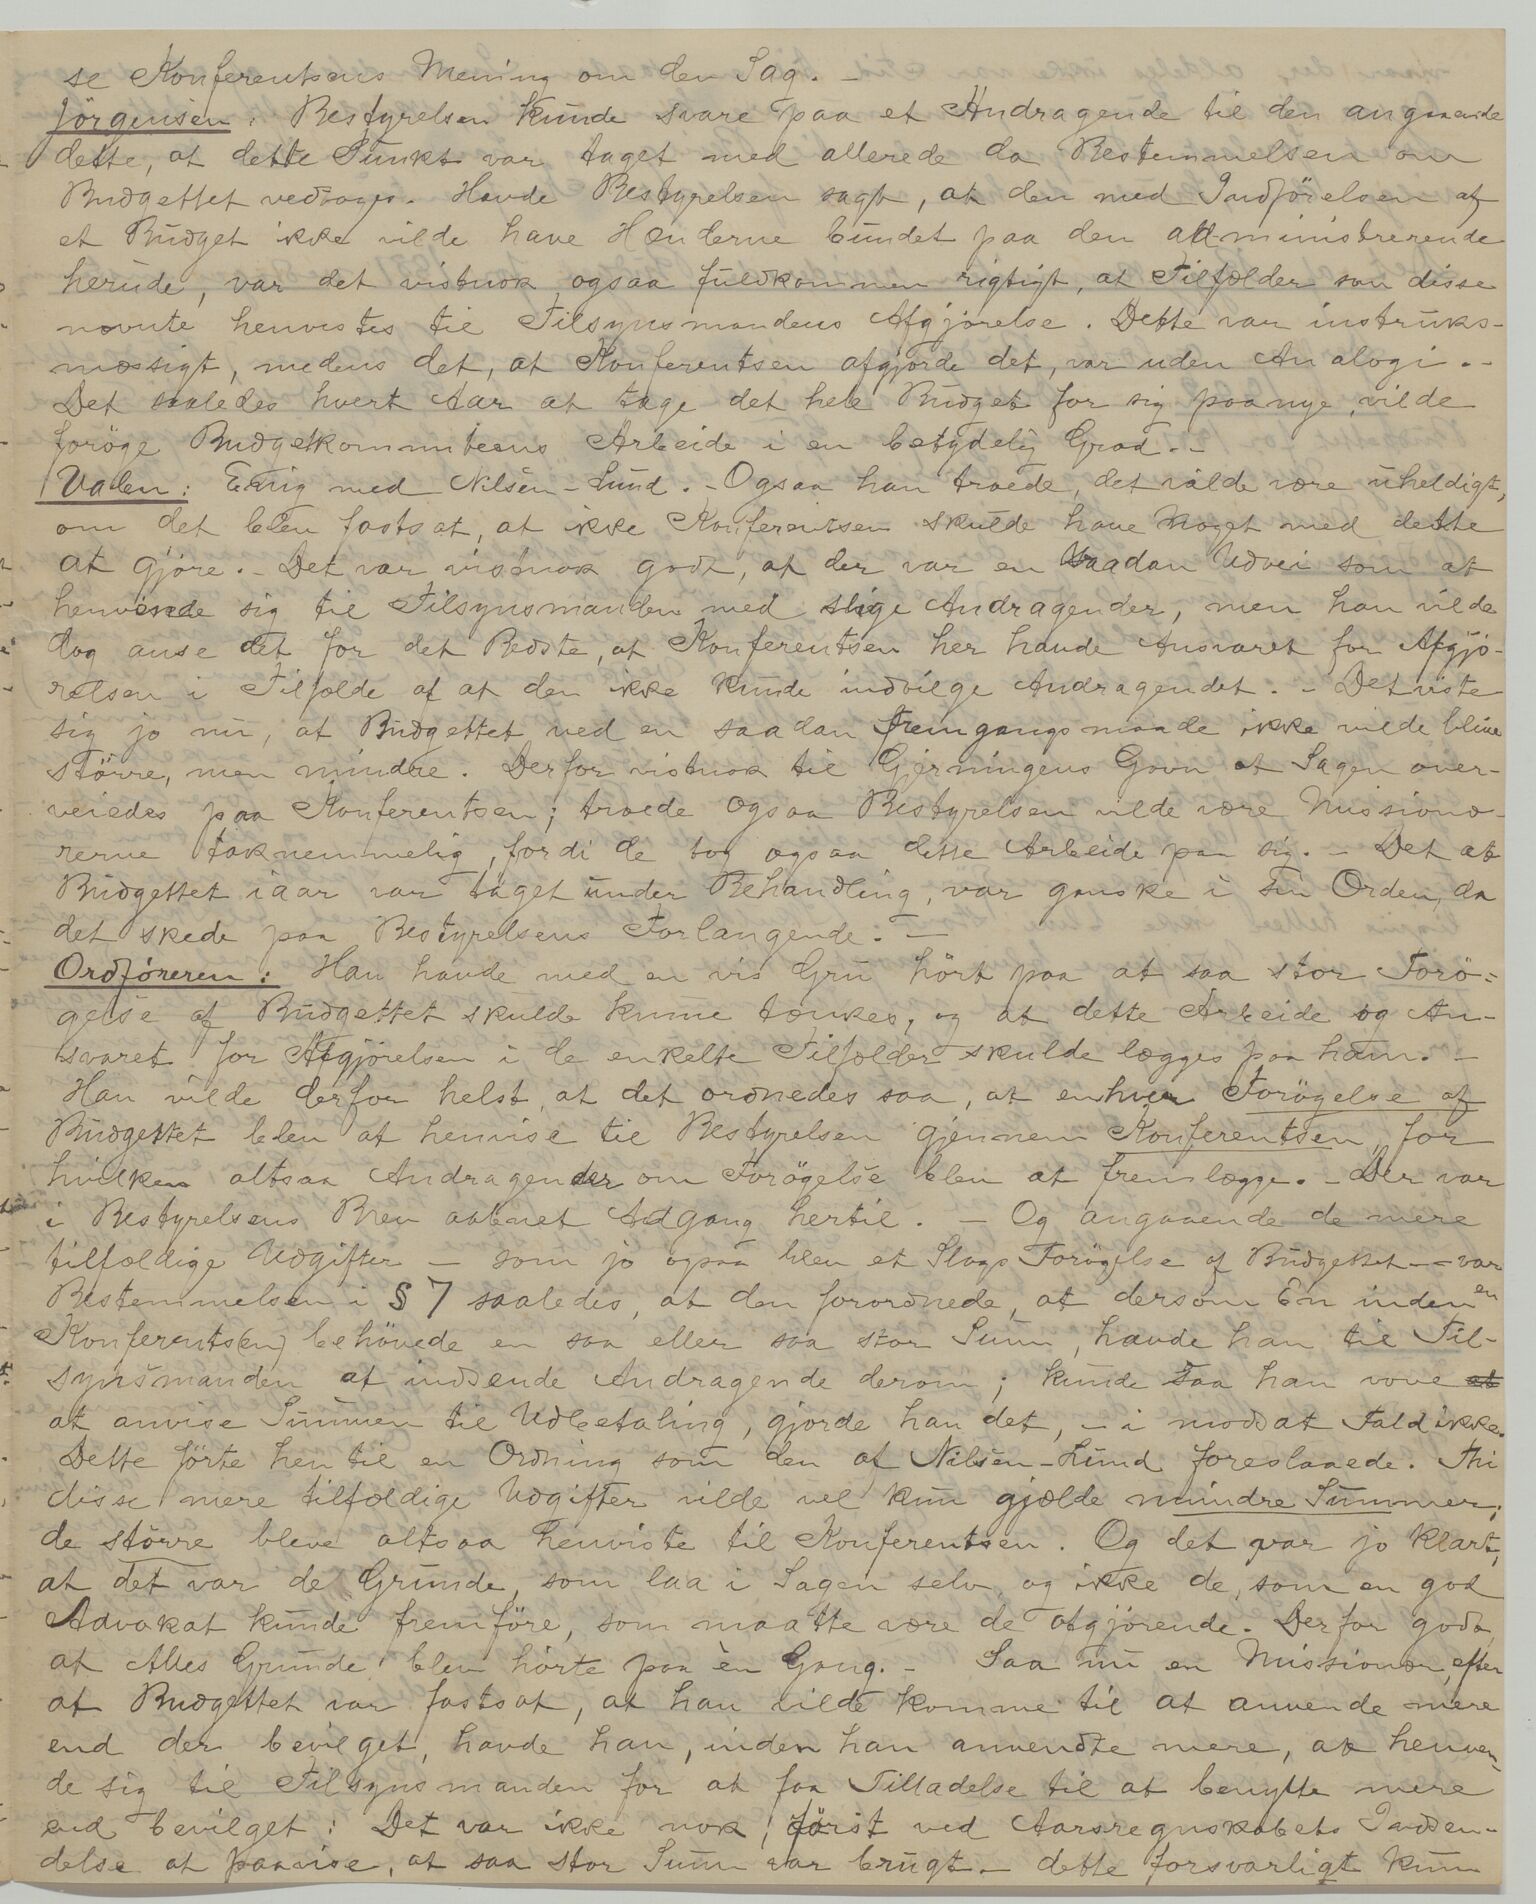 se Konferentsens Mening om den Sag. –
Jörgensen: Bestyrelsen kunde svare paa et Andragende til den angaaende
dette, at dette Punkt var taget med allerede da Bestemmelsen om
Budgettet vedtoges. Havde Bestyrelsen sagt, at den med Indförelsen af
et Budget ikke vilde have Hænderne bundet paa den administrerende
herude, var det vistnok ogsaa fuldkommen rigtigt, at Tilfælder som disse
nævnte henvistes til Tilsynsmandens Afgjörelse. Dette var instruks-
mæssigt, medens det, at Konferentsen afgjorde det, var uden Analogi. –
Det saaledes hvert Aar at tage det hele Budget for sig paanye, vilde
foröge Budgetkommiteens Arbeide i en betydelig Grad. –
Valen: Enig med Nilsen-Lund. – Ogsaa han troede, det vilde være uheldigt,
om det blev fastsat, at ikke Konferentsen skulde have Noget med dette
at gjöre. – Det var vistnok godt, at der var en saadan Udvei som at
henvende sig til Tilsynsmanden med slige Andragender, men han vilde
dog anse det for det Bedste, at Konferentsen her havde Ansvaret for Afgjö-
relsen i Tilfælde af at den ikke kunde indvilge Andragendet. – Det viste
sig jo nu, at Budgettet ved en saadan Fremgangsmaade ikke vilde blive
större, men mindre. Derfor vistnok til Gjerningens Gavn at Sagen over-
veiedes paa Konferentsen; troede ogsaa Bestyrelsen vilde være Missionæ-
rerne taknemmelig, fordi de tog ogsaa dette Arbeide paa sig. – Det at
Budgettet iaar var taget under Behandling, var ganske i sin Orden, da
det skede paa Bestyrelsens Forlangende. –
Ordföreren: Han havde med en vis Gru hört paa at saa stor Forö-
gelse af Budgettet skulde kunne tænkes, og at dette Arbeide og An-
svaret for Afgjörelsen i de enkelte Tilfælder skulde lægges paa ham. –
Han vilde derfor helst, at det ordnedes saa, at enhver Forögelse af
Budgettet blev at henvise til Bestyrelsen gjennem Konferentsen, for
hvilken altsaa Andragender om Forögelse blev at fremlægge. – Der var
i Bestyrelsens Brev aabnet Adgang hertil. – Og angaaende de mere
tilfældige Udgifter – som jo ogsaa blev et Slags Forögelse af Budgettet – var
Bestemmelsen i § 7 saaledes, at den forordnede, at dersom En inden en
Konferents(en) behövede en saa eller saa stor Sum, havde han til Til-
synsmanden at indsende Andragende derom; kunde saa han vove
at anvise Summen til Udbetaling, gjorde han det, – i modsat Fald ikke.
Dette förte hen til en Ordning som den af Nilsen-Lund foreslaaede. Thi
disse mere tilfældige Udgifter vilde vel kun gjælde mindre Summer;
de större bleve altsaa henviste til Konferentsen. Og det var jo klart,
at det var de Grunde, som laa i Sagen selv og ikke de, som en god
Advokat kunde fremföre, som maatte være de afgjörende. Derfor godt,
at Alles Grunde blev hörte paa èn Gang. – Saa nu en Missionær, efter
at Budgettet var fastsat, at han vilde komme til at anvende mere
end der bevilget, havde han, inden han anvendte mere, at henven-
de sig til Tilsynsmanden for at faa Tilladelse til at benytte mere
end bevilget: Det var ikke nok, först ved Aarsregnskabets Indsen-
delse at paavise, at saa stor Sum var brugt. – dette forsvarligt kun